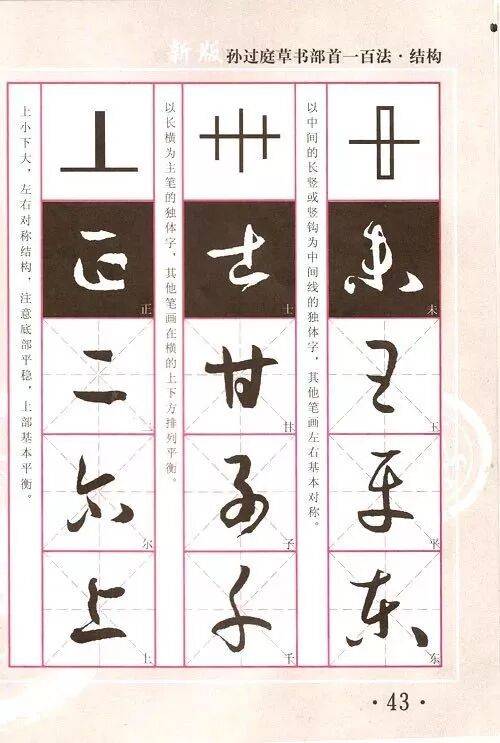 新版 孙过庭草书部首一百法·结构
未
王
平
东
以中间的长竖或竖钩为中间线的独体字，其他笔画左右基本对称。
士
甘
子
千
以长横为主笔的独体字，其他笔画在横的上下方排列平衡。
正
二
尔
上
上小下大，左右对称结构，注意底部平稳，上部基本平衡。
·43·